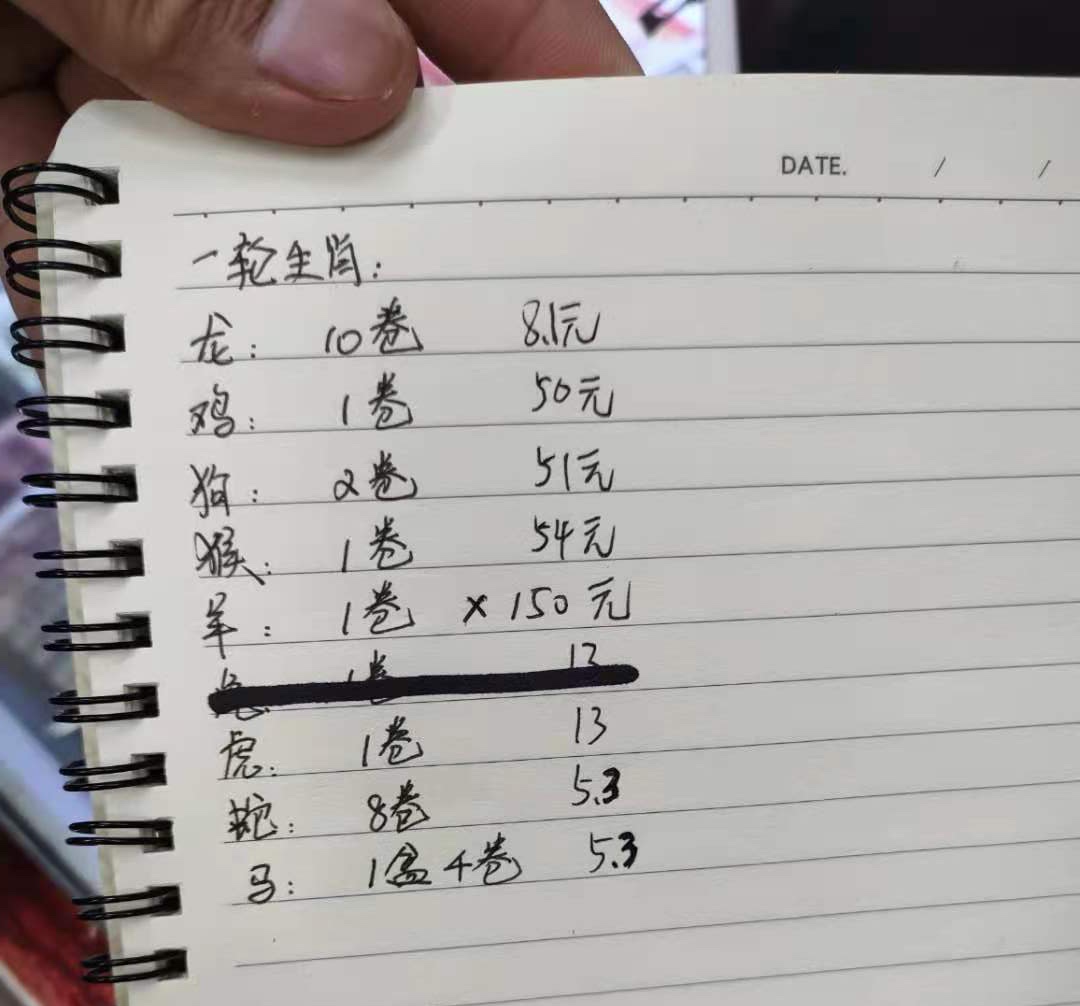 DATE. / /
一轮生肖:
龙: 10卷 8.1元
鸡: 1卷 50元
狗: 2卷 51元
猴: 1卷 54元
羊: 1卷 × 150元
1卷 13
虎: 1卷 13
蛇: 8卷 5.3
马: 1盒4卷 5.3